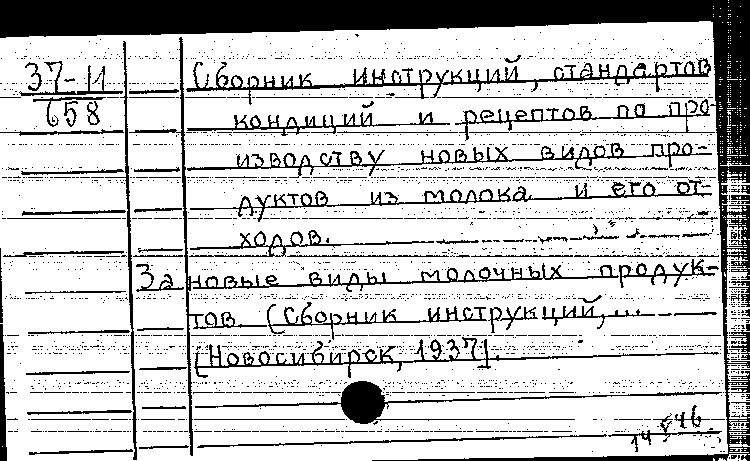 37-11
658
Сборник инструкций, стандартов
кондиций и рецептов по про-
изводству новых видов про-
дуктов из молока и его от-
ходов.
За новые виды молочных продук-
тов. [Сборник инструкций, ...
[Новосибирск, 1937].
14546